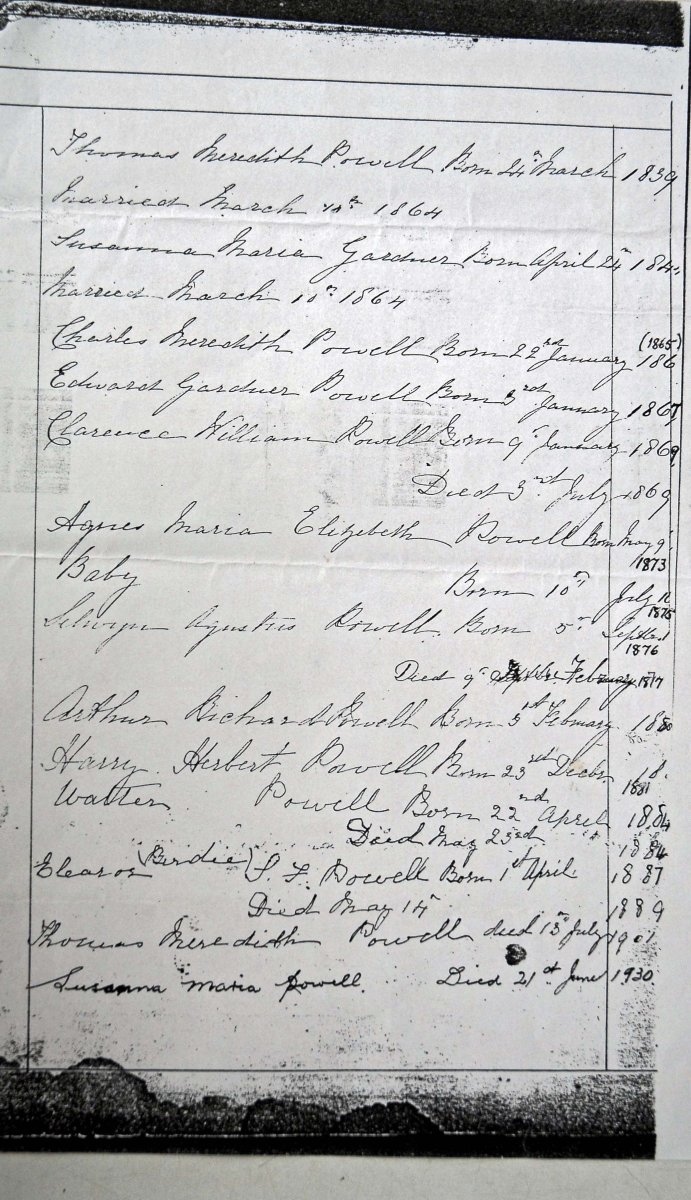 Thomas Meredith Powell Born 24th March 1839
Married March 10th 1864
Susanna Maria Gardner Born April 24th 184
Married March 10th 1864
Charles Meredith Powell Born 22nd January 186 (1865)
Edward Gardner Powell Born 3rd January 1867
Clarence William Powell Born 9th January 1869
Died 3rd July 1869
Agnes Maria Elizebeth Powell Born May 9th
1873
Baby Born 10th July
1875
Selwyn Agustus Powell. Born 5th Septber
1876
Died 9th February 1877
Arthur Richard Powell Born 5th February 1880
Harry Herbert Powell Born 23rd Decbr. 18
1881
Walter Powell Born 22nd April 1884
Died May 23rd 1884
Eleanor (Birdie) S. F. Powell Born 1st April 1887
Died May 14th 1889
Thomas Meredith Powell died 13th July 1901
Susanna Maria Powell. Died 21st June 1930